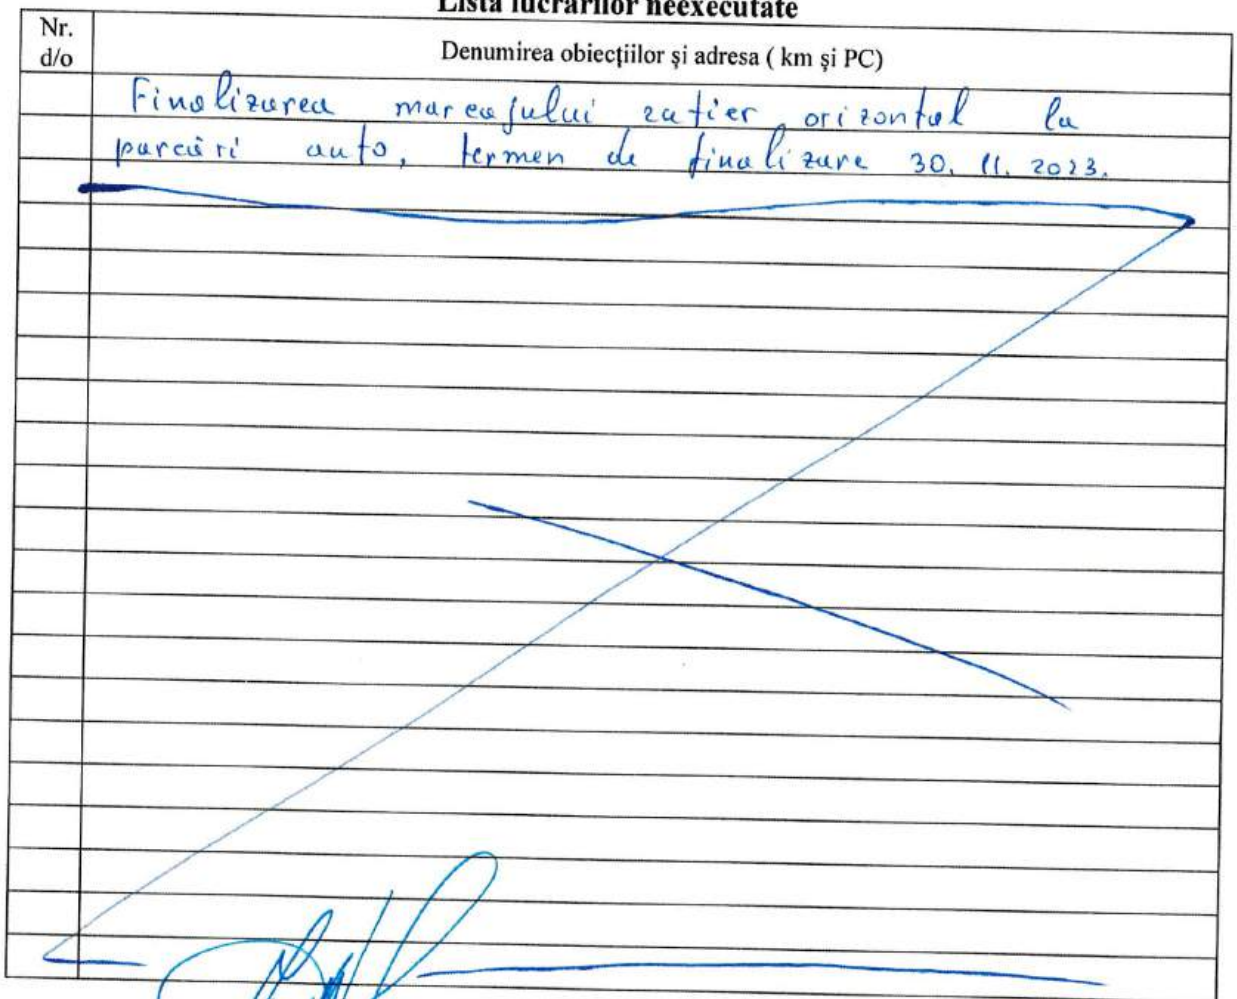 Lista lucrărilor neexecutate
Nr.
d/o
Denumirea obiecțiilor și adresa ( km și PC)
Finalizarea marcajului rutier orizontal la
parcări auto, termen de finalizare 30.11.2023.